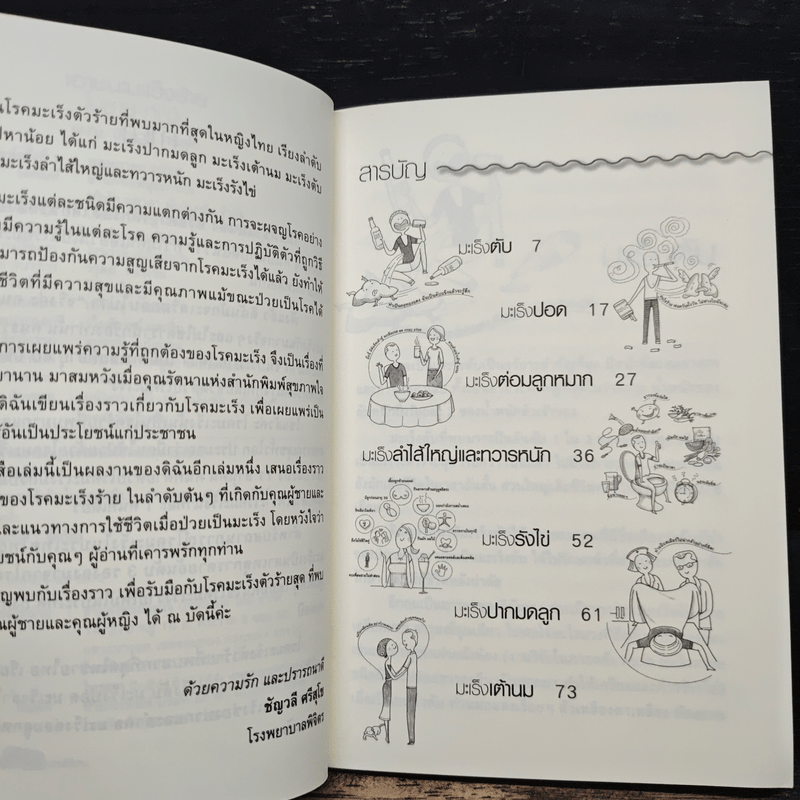 นโรคมะเร็งตัวร้ายที่พบมากที่สุดในหญิงไทย เรียงลำดับ
ปหาน้อย ได้แก่ มะเร็งปากมดลูก มะเร็งเต้านม มะเร็งตับ
มะเร็งลำไส้ใหญ่และทวารหนัก มะเร็งรังไข่
มะเร็งแต่ละชนิดมีความแตกต่างกัน การจะผจญโรคอย่าง
งมีความรู้ในแต่ละโรค ความรู้และการปฏิบัติตัวที่ถูกวิธี
มารถป้องกันความสูญเสียจากโรคมะเร็งได้แล้ว ยังทำให้
ชีวิตที่มีความสุขและมีคุณภาพแม้ขณะป่วยเป็นโรคได้
การเผยแพร่ความรู้ที่ถูกต้องของโรคมะเร็ง จึงเป็นเรื่องที่
ยานาน มาสมหวังเมื่อคุณรัตนาแห่งสำนักพิมพ์สุขภาพใจ
ดิฉันเขียนเรื่องราวเกี่ยวกับโรคมะเร็ง เพื่อเผยแพร่เป็น
รู้อันเป็นประโยชน์แก่ประชาชน
สือเล่มนี้เป็นผลงานของดิฉันอีกเล่มหนึ่ง เสนอเรื่องราว
ของโรคมะเร็งร้าย ในลำดับต้นๆ ที่เกิดกับคุณผู้ชายและ
และแนวทางการใช้ชีวิตเมื่อป่วยเป็นมะเร็ง โดยหวังใจว่า
ยชน์กับคุณๆ ผู้อ่านที่เคารพรักทุกท่าน
ญพบกับเรื่องราว เพื่อรับมือกับโรคมะเร็งตัวร้ายสุด ที่พบ
ณผู้ชายและคุณผู้หญิง ได้ ณ บัดนี้ค่ะ
ด้วยความรัก และปรารถนาดี
ชัญวลี ศรีสุโข
โรงพยาบาลพิจิตร
สารบัญ
มะเร็งตับ 7
มะเร็งปอด 17
มะเร็งต่อมลูกหมาก 27
มะเร็งลำไส้ใหญ่และทวารหนัก 36
มะเร็งรังไข่ 52
มะเร็งปากมดลูก 61
มะเร็งเต้านม 73